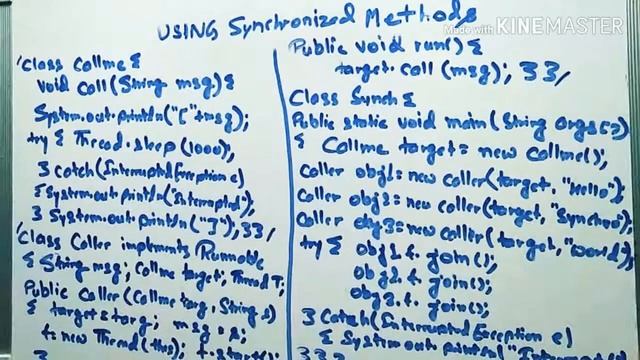 USING Synchronized Methods
Made with KINEMASTER
class Callme {
void call(String msg) {
System.out.println("[" + msg);
try { Thread.sleep(1000);
} catch(Interrupted Exception e)
{ System.out.println("Interrupted");
} System.out.println("]"); } }
class Caller implements Runnable
{ String msg; Callme target; Thread T;
Public Caller(Callme targ, String s)
{ target = targ; msg = s;
t = new Thread(this); t.start();
}
Public void run() {
target.call(msg); } }
Class Synch {
Public static void main(String args[])
{ Callme target = new Callme();
Caller obj1 = new caller(target, "Hello");
Caller obj2 = new caller(target, "Synchro");
Caller obj3 = new caller(target, "world");
try { obj1.t. join();
obj2.t. join();
obj3.t. join();
} Catch(Interrupted Exception e)
{ System.out.println(
} } }